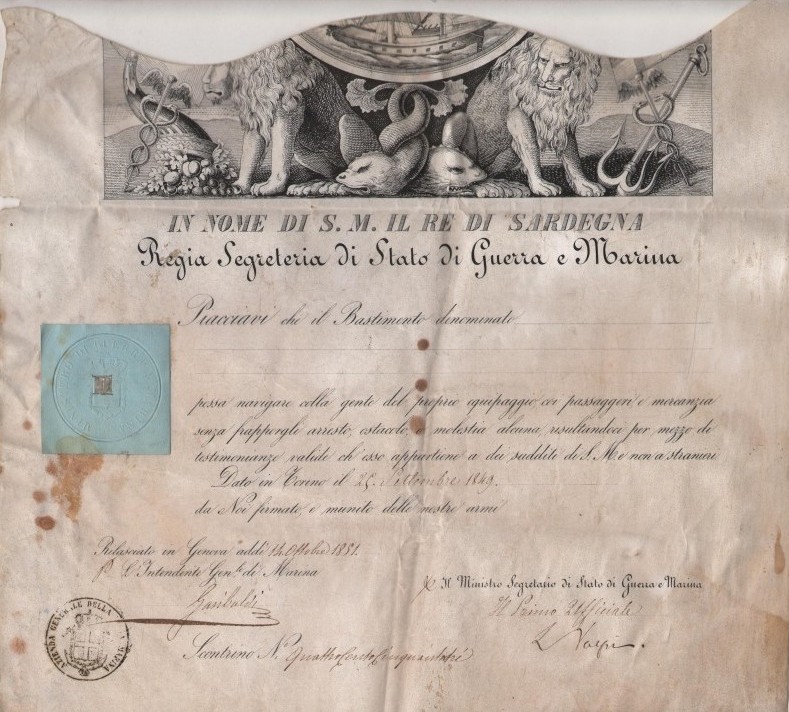 IN NOME DI S. M. IL RE DI SARDEGNA
Regia Segreteria di Stato di Guerra e Marina
Piacciavi che il Bastimento denominato
possa navigare colla gente del proprio equipaggio, coi passaggeri, e mercanzia
senza frapporgli arresto, ostacolo, o molestia alcuna, risultandoci per mezzo di
testimonianze valide ch'esso appartiene a dei sudditi di S. M. e non a stranieri
Dato in Torino il 28 Settembre 1849.
da Noi firmato, e munito delle nostre armi
Rilasciato in Genova addi 14 Ottobre 1851.
L'Intendente Gen.le di Marina
Il Ministro Segretario di Stato di Guerra e Marina
Garibaldi
Il Primo Uffiziale
AZIENDA GENERALE DELLA MARINA
Scontrino N. Quattrocentocinquantatré